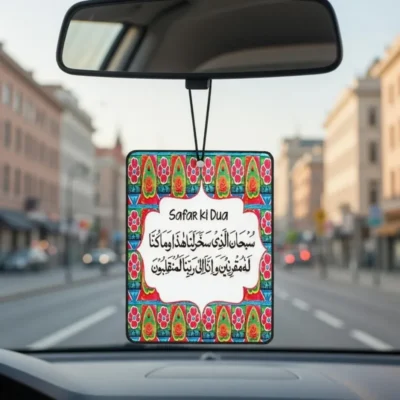 Safar ki Dua
سُبْحَانَ الَّذِىْ سَخَّرَ لَنَا هٰذَا وَمَا كُنَّا
لَهُ مُقْرِنِيْنَ وَ اِنَّا اِلٰى رَبِّنَا لَمُنْقَلِبُوْنَ